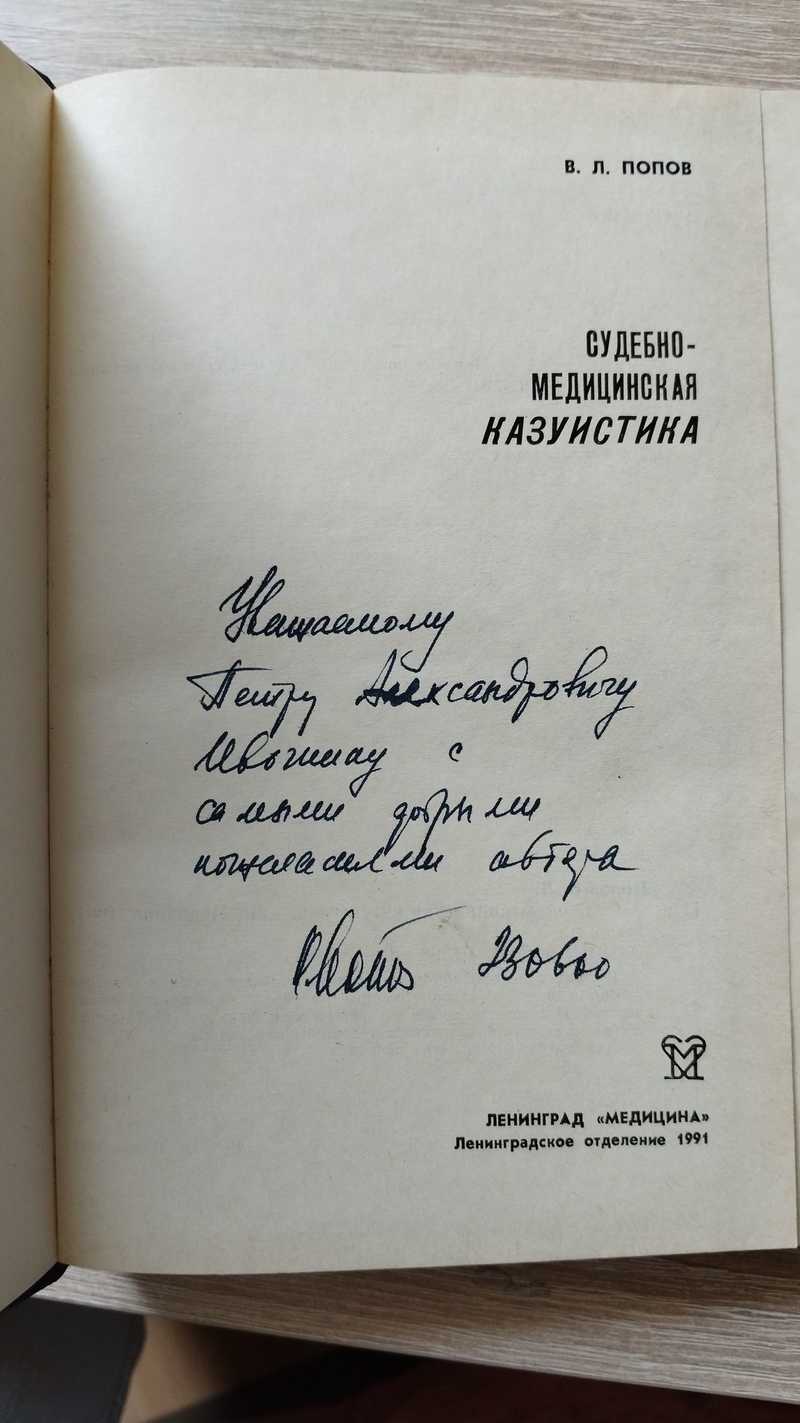 В. Л. ПОПОВ
СУДЕБНО-
МЕДИЦИНСКАЯ
КАЗУИСТИКА
Уважаемому
Петру Александровичу
с
самыми добрыми
пожеланиями автора
ЛЕНИНГРАД «МЕДИЦИНА»
Ленинградское отделение 1991